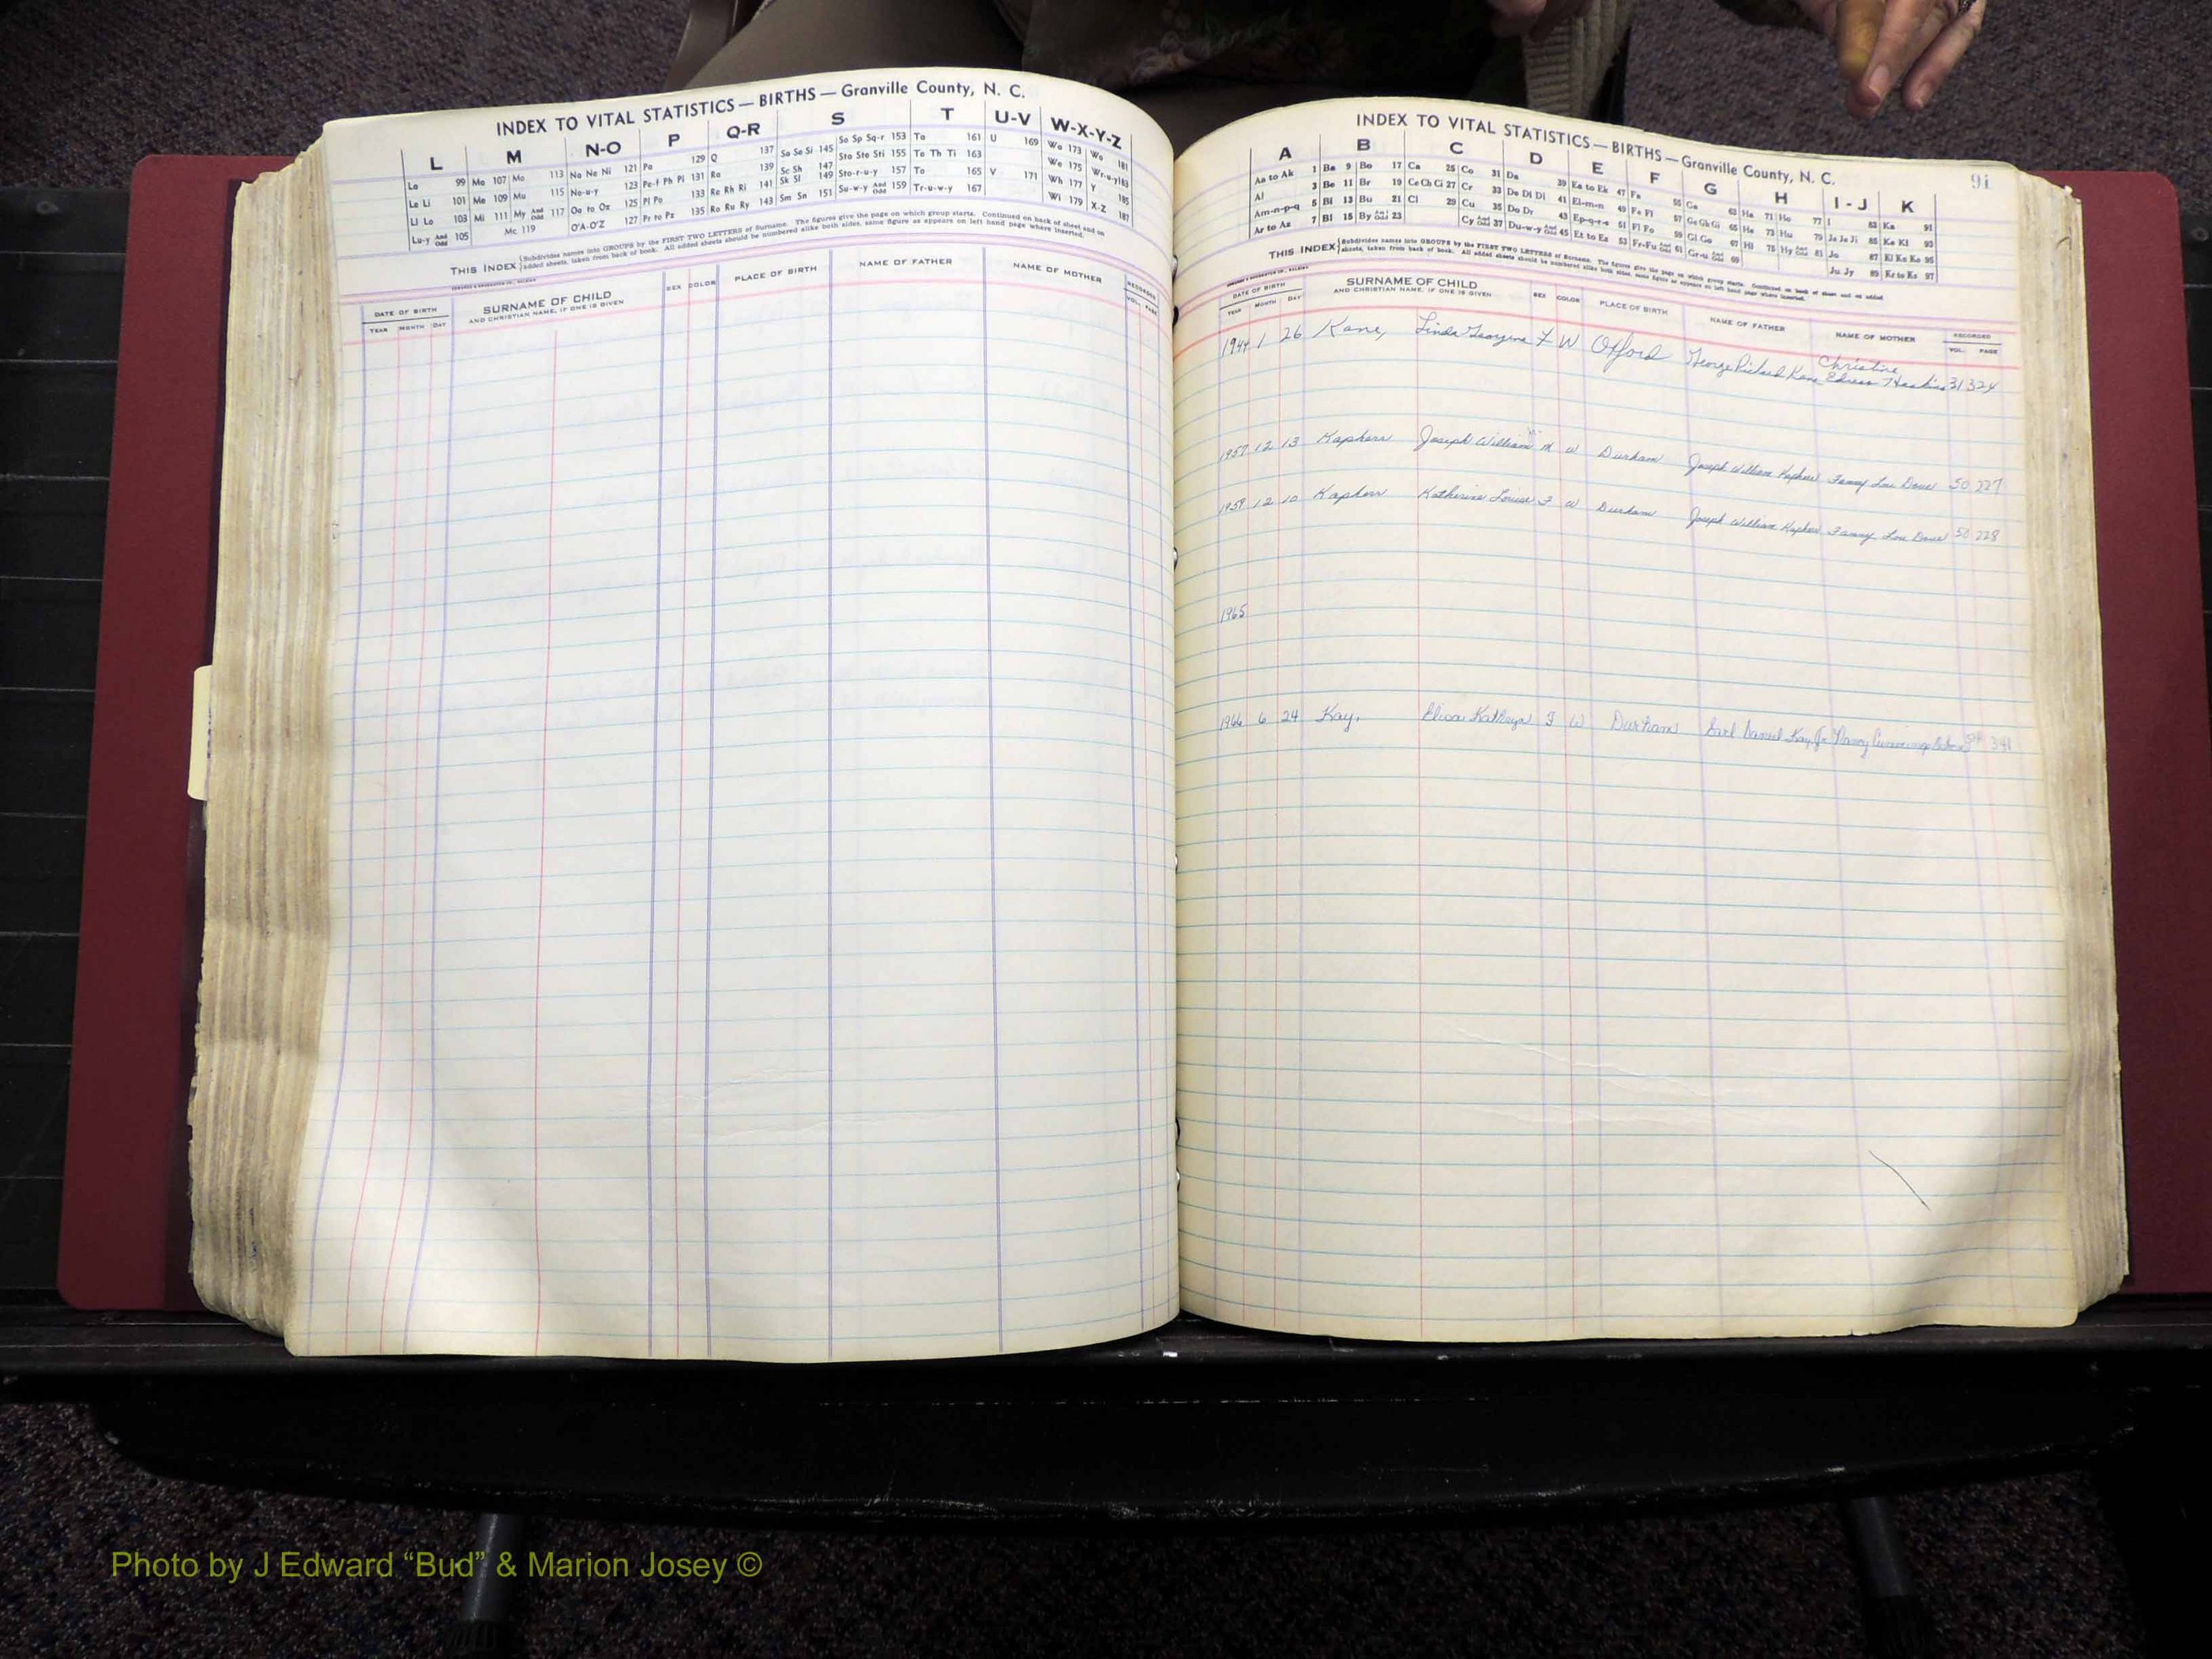 INDEX TO VITAL STATISTICS — BIRTHS — Granville County, N. C.
L M N-O P Q-R S T U-V W-X-Y-Z
La 99 Ma 107 Mo 113 Na Ne Ni 121 Pa 129 Q 137 Sa Se Si 145 So Sp Sq-r 153 Ta 161 U 169 Wa 173 Wo 181
Le Li 101 Me 109 Mu 115 No-u-y 123 Pe-f Ph Pi 131 Ra 139 Sc Sh 147 Sta Ste Sti 155 Te Th Ti 163 We 175 Wr-u-y 183
Ll Lo 103 Mi 111 My And Odd 117 Oa to Oz 125 Pl Po 133 Re Rh Ri 141 Sk Sl 149 Sto-r-u-y 157 To 165 V 171 Wh 177 Y 185
Lu-y And Odd 105 Mc 119 O'A-O'Z 127 Pr to Pz 135 Ro Ru Ry 143 Sm Sn 151 Su-w-y And Odd 159 Tr-u-w-y 167 Wi 179 X-Z 187
THIS INDEX Subdivides names into GROUPS by the FIRST TWO LETTERS of Surname. The figures give the page on which group starts. Continued on back of sheet and on
added sheets, taken from back of book. All added sheets should be numbered alike both sides, same figure as appears on left hand page where inserted.
DATE OF BIRTH SURNAME OF CHILD SEX COLOR PLACE OF BIRTH NAME OF FATHER NAME OF MOTHER RECORDED
YEAR MONTH DAY AND CHRISTIAN NAME, IF ONE IS GIVEN VOL. PAGE
INDEX TO VITAL STATISTICS — BIRTHS — Granville County, N. C.
91
A B C D E F G H I - J K
Aa to Ak 1 Ba 9 Bo 17 Ca 25 Co 31 Da 39 Ea to Ek 47 Fa 55 Ga 63 Ha 71 Ho 77 I 83 Ka 91
Al 3 Be 11 Br 19 Ce Ch Ci 27 Cr 33 De Di Dl 41 El-m-n 49 Fe Fi 57 Ge Gh Gi 65 He 73 Hu 79 Ja Je Ji 85 Ke Kl 93
Am-n-p-q 5 Bi 13 Bu 21 Cl 29 Cu 35 Do Dr 43 Ep-q-r-s 51 Fl Fo 59 Gl Go 67 Hi 75 Hy And Odd 81 Jo 87 Ki Kn Ko 95
Ar to Az 7 Bl 15 By And Odd 23 Cy And Odd 37 Du-w-y And Odd 45 Et to Ez 53 Fr-Fu And Odd 61 Gr-u And Odd 69 Ju Jy 89 Kr to Kz 97
THIS INDEX Subdivides names into GROUPS by the FIRST TWO LETTERS of Surname. The figures give the page on which group starts. Continued on back of sheet and on added
sheets, taken from back of book. All added sheets should be numbered alike both sides, same figure as appears on left hand page where inserted.
DATE OF BIRTH SURNAME OF CHILD SEX COLOR PLACE OF BIRTH NAME OF FATHER NAME OF MOTHER RECORDED
YEAR MONTH DAY AND CHRISTIAN NAME, IF ONE IS GIVEN VOL. PAGE
1944 1 26 Kane, Linda Georgene F W Oxford George Richard Kane Christine Haskins 31 324
1957 12 13 Kapherr Joseph William M W Durham Joseph William Kapherr Fanny Lou Dove 50 227
1959 12 10 Kapherr Katherine Louise F W Durham Joseph William Kapherr Fanny Lou Dove 50 228
1965
1966 6 24 Kay, Katheryn F W Durham Earl Daniel Kay, Jr Nancy 341
Photo by J Edward “Bud” & Marion Josey ©